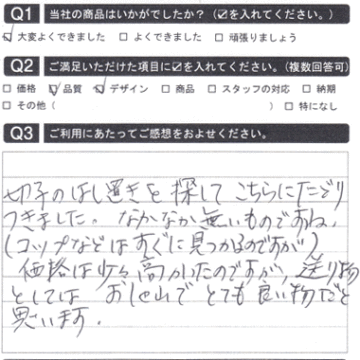 Q1 当社の商品はいかがでしたか？（☑を入れてください。）
☑ 大変よくできました □ よくできました □ 頑張りましょう
Q2 ご満足いただけた項目に☑を入れてください。（複数回答可）
□ 価格 ☑ 品質 ☑ デザイン □ 商品 □ スタッフの対応 □ 納期
□ その他（ ） □ 特になし
Q3 ご利用にあたってご感想をおよせください。
切子のはし置きを探してこちらにたどり
つきました。なかなか無いものですね。
（コップなどはすぐに見つかるのですが）
価格は少々高かったのですが、送り物
としては で とても良い物だと
思います.